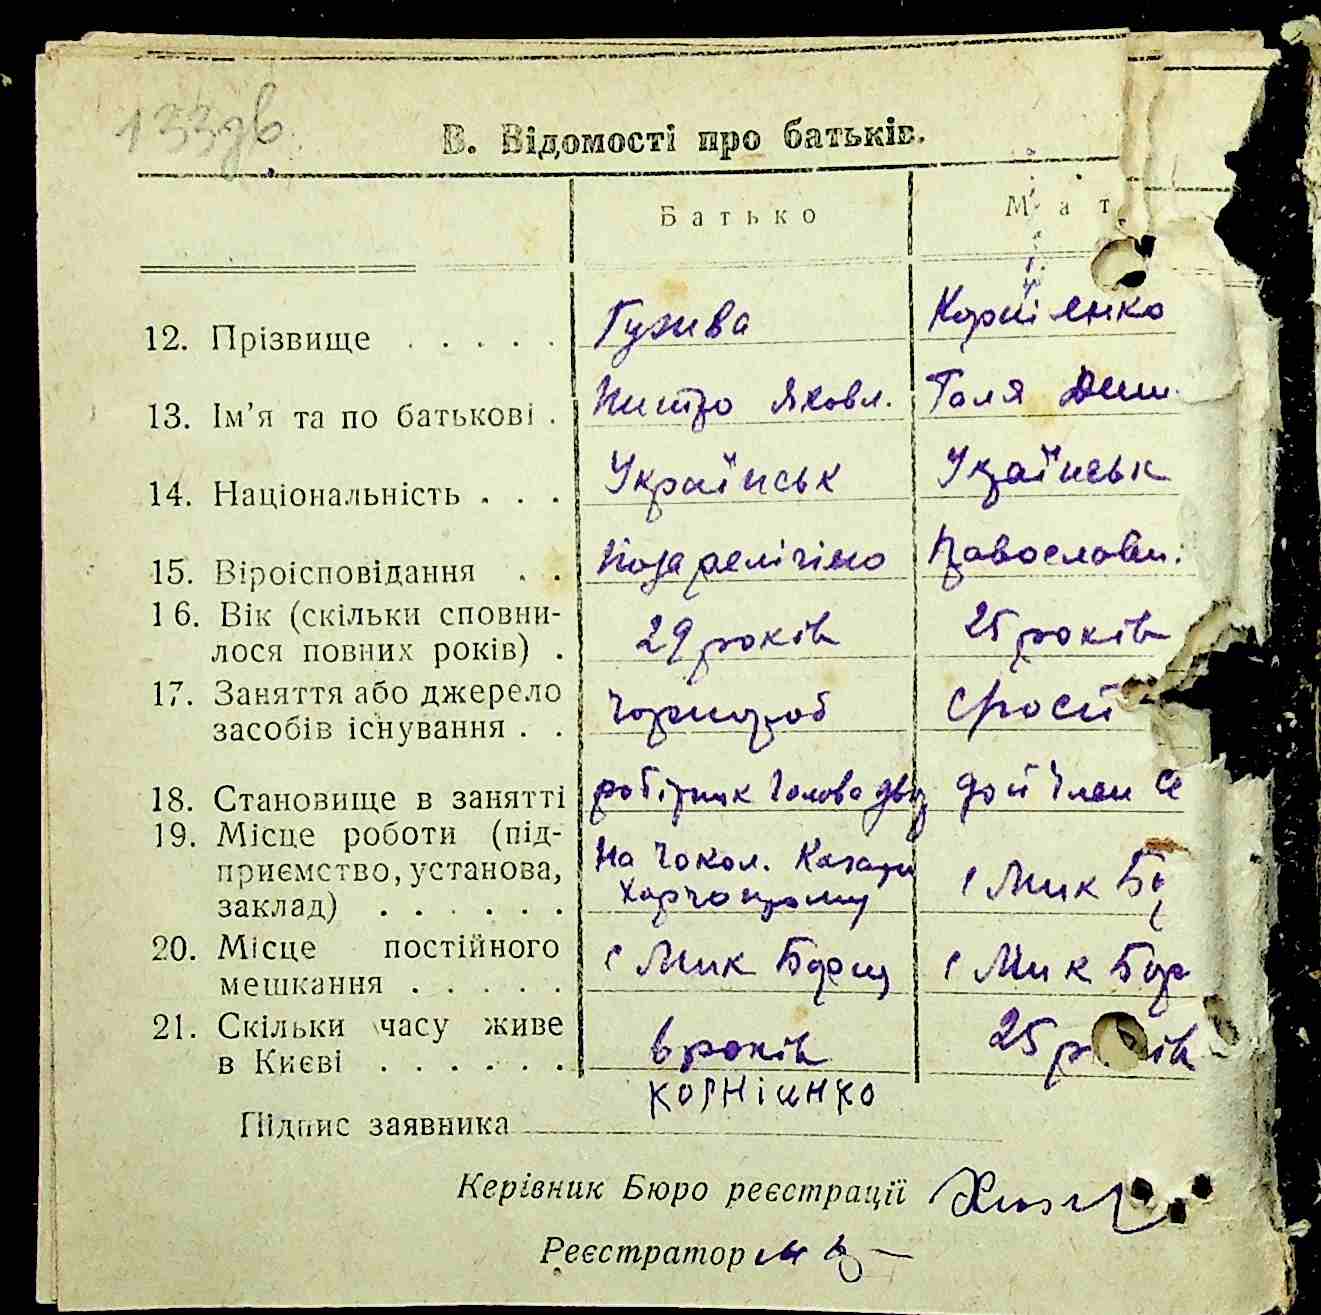 133дв
В. Відомості про батьків.
Батько Мат
12. Прізвище . . . . . Гужва Корніенко
13. Ім’я та по батькові . Яковл. Галя Дем.
14. Національність . . . Українськ Українськ
15. Віроісповідання . . Позарелігіно Православн.
16. Вік (скільки сповни- 29 років 25 років
лося повних років) .
17. Заняття або джерело
засобів існування . . Чорнороб
18. Становище в занятті робітник
19. Місце роботи (під-
приємство, установа, На Чокол. с Мик Бо
заклад) . . . . . .
20. Місце постійного
мешкання . . . . . с Мик Борщ с Мик Бор
21. Скільки часу живе
в Києві . . . . . . 6 років 25 років
корніинко
Підпис заявника
Керівник Бюро реєстрації
Реєстратор